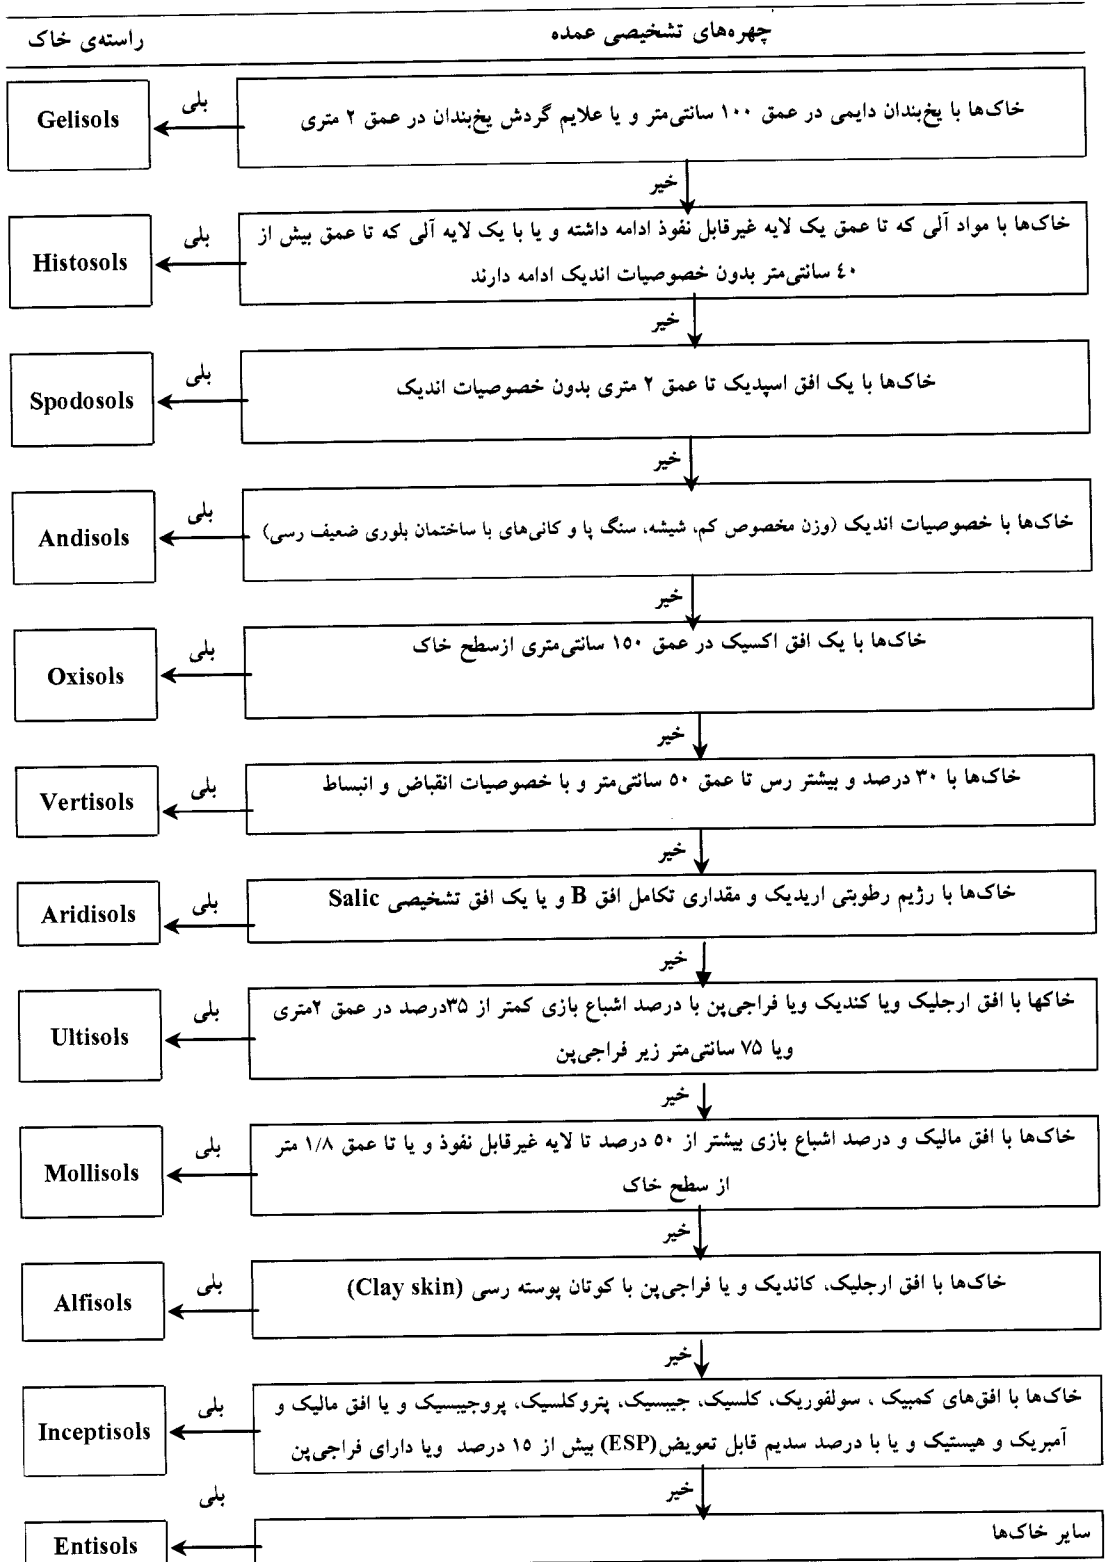 چهره‌های تشخیصی عمده
راسته‌ی خاک
خاک‌ها با یخ‌بندان دایمی در عمق ۱۰۰ سانتی‌متر و یا علایم گردش یخ‌بندان در عمق ۲ متری
بلی
Gelisols
خیر
خاک‌ها با مواد آلی که تا عمق یک لایه غیرقابل نفوذ ادامه داشته و یا با یک لایه آلی که تا عمق بیش از
٤٠ سانتی‌متر بدون خصوصیات اندیک ادامه دارند
بلی
Histosols
خیر
خاک‌ها با یک افق اسپدیک تا عمق ۲ متری بدون خصوصیات اندیک
بلی
Spodosols
خیر
خاک‌ها با خصوصیات اندیک (وزن مخصوص کم، شیشه، سنگ پا و کانی‌های با ساختمان بلوری ضعیف رسی)
بلی
Andisols
خیر
خاک‌ها با یک افق اکسیک در عمق ۱۵۰ سانتی‌متری ازسطح خاک
بلی
Oxisols
خیر
خاک‌ها با ۳۰ درصد و بیشتر رس تا عمق ۵۰ سانتی‌متر و با خصوصیات انقباض و انبساط
بلی
Vertisols
خیر
خاک‌ها با رژیم رطوبتی اریدیک و مقداری تکامل افق B و یا یک افق تشخیصی Salic
بلی
Aridisols
خیر
خاکها با افق ارجلیک ویا کندیک ویا فراجی‌پن با درصد اشباع بازی کمتر از ۳۵درصد در عمق ۲متری
ویا ۷۵ سانتی‌متر زیر فراجی‌پن
بلی
Ultisols
خیر
خاک‌ها با افق مالیک و درصد اشباع بازی بیشتر از ۵۰ درصد تا لایه غیرقابل نفوذ و یا تا عمق ۱/۸ متر
از سطح خاک
بلی
Mollisols
خیر
خاک‌ها با افق ارجلیک، کاندیک و یا فراجی‌پن با کوتان پوسته رسی (Clay skin)
بلی
Alfisols
خیر
خاک‌ها با افق‌های کمبیک ، سولفوریک، کلسیک، جیبسیک، پتروکلسیک، پروجیبسیک و یا افق مالیک و
آمبریک و هیستیک و یا با درصد سدیم قابل تعویض(ESP) بیش از ۱۵ درصد ویا دارای فراجی‌پن
بلی
Inceptisols
خیر
سایر خاک‌ها
بلی
Entisols